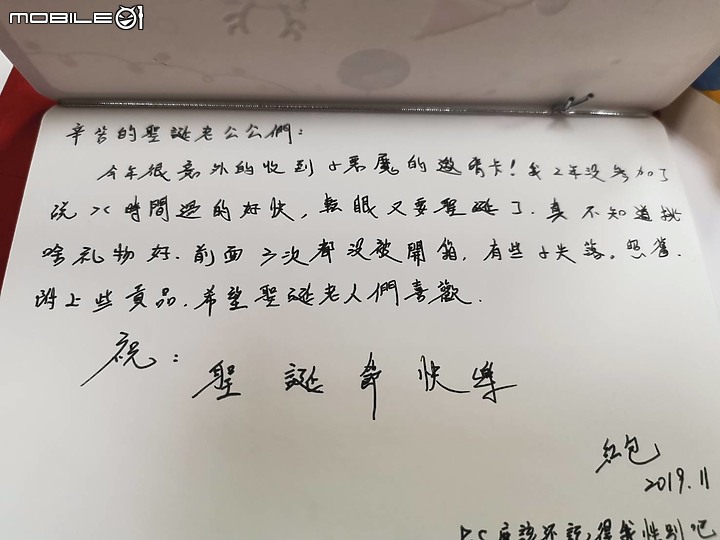 MOBILE01
辛苦的聖誕老公公們：
今年很意外的收到小惡魔的邀請卡！我2年沒參加了
說x時間過的好快，轉眼又要聖誕了．真不知道挑
啥礼物好．前面3次都沒被開箱，有些小失落。照舊．
附上些貢品．希望聖誕老人們喜歡．
祝：
聖誕節快樂
紅包
2019.11
PS應該还記得我性別吧